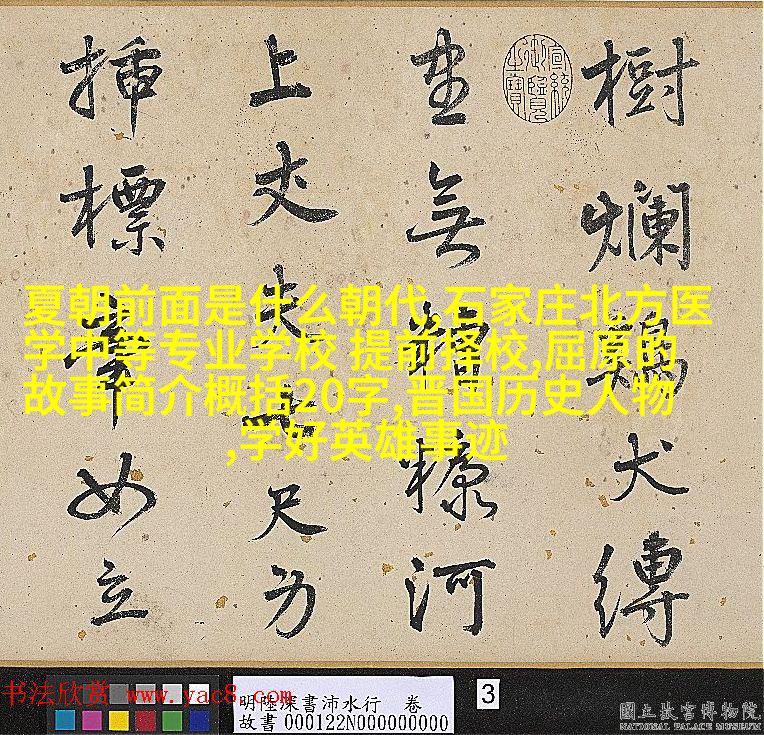 樹爛犬縛
無糠河
上丈夫尺
插標如立
夏朝前面是什么朝代,石家庄北方医
学中等专业学校 提前择校,屈原的
故事简介概括20字,晋国历史人物
,学好英雄事迹
书法欣赏 www.yac8.com
明陸深書沛水行 卷
故書 000122N000000000
3
國立故宮博物院
NATIONAL PALACE MUSEUM